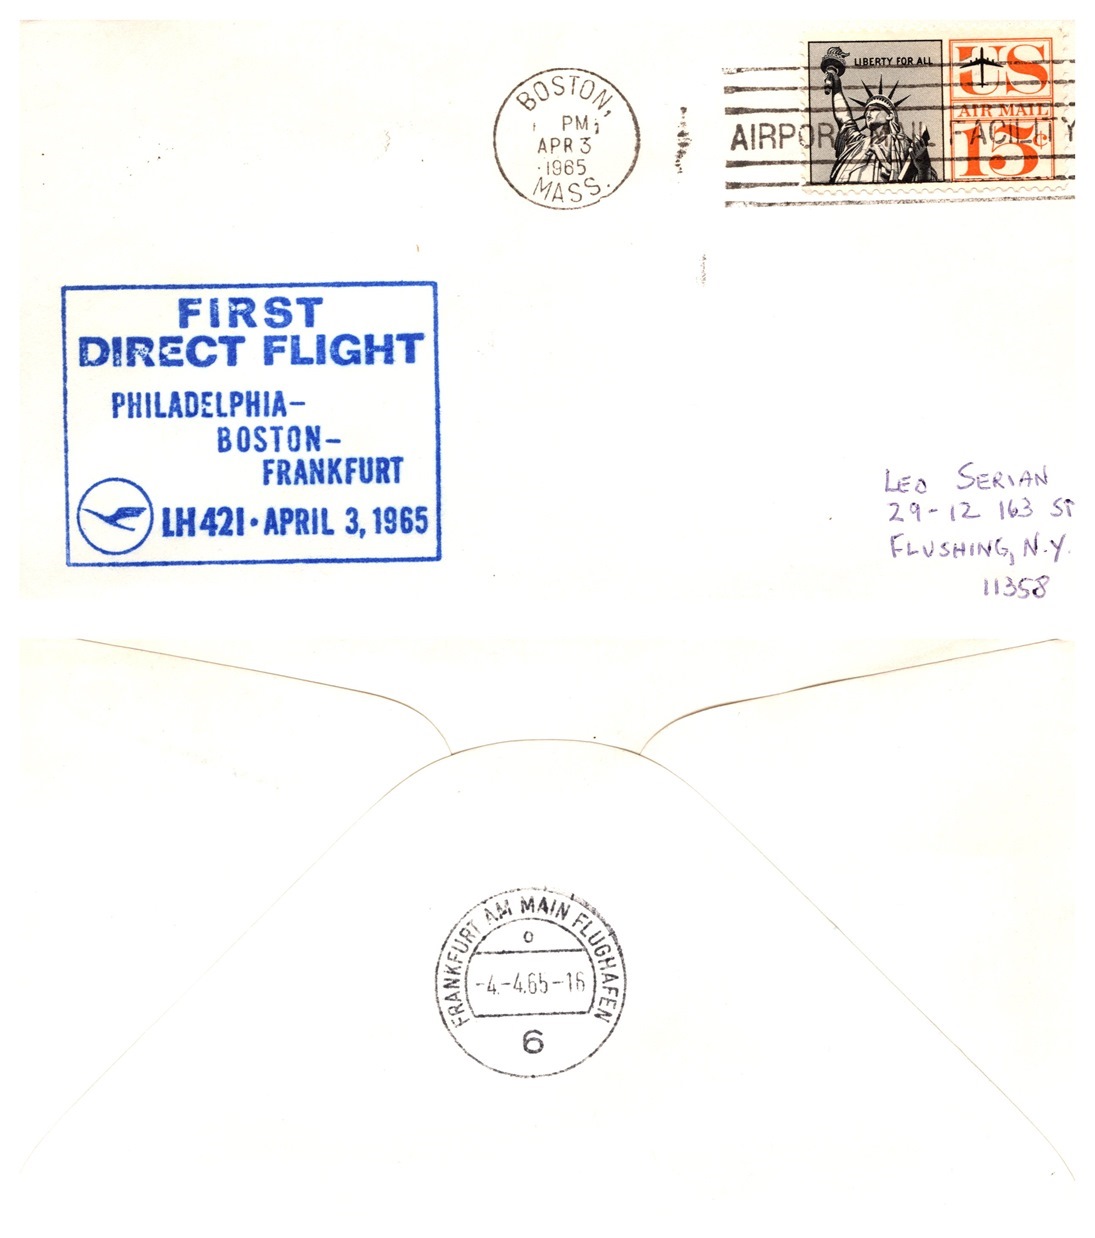 BOSTON,
PM
APR 3
1965
MASS.
AIRPORT MAIL FACILITY
LIBERTY FOR ALL
US
AIR MAIL
15c
FIRST
DIRECT FLIGHT
PHILADELPHIA-
BOSTON-
FRANKFURT
LH 421 · APRIL 3, 1965
LEO SERIAN
29-12 163 ST
FLUSHING, N.Y.
11358
FRANKFURT AM MAIN FLUGHAFEN
o
-4.-4.65-16
6